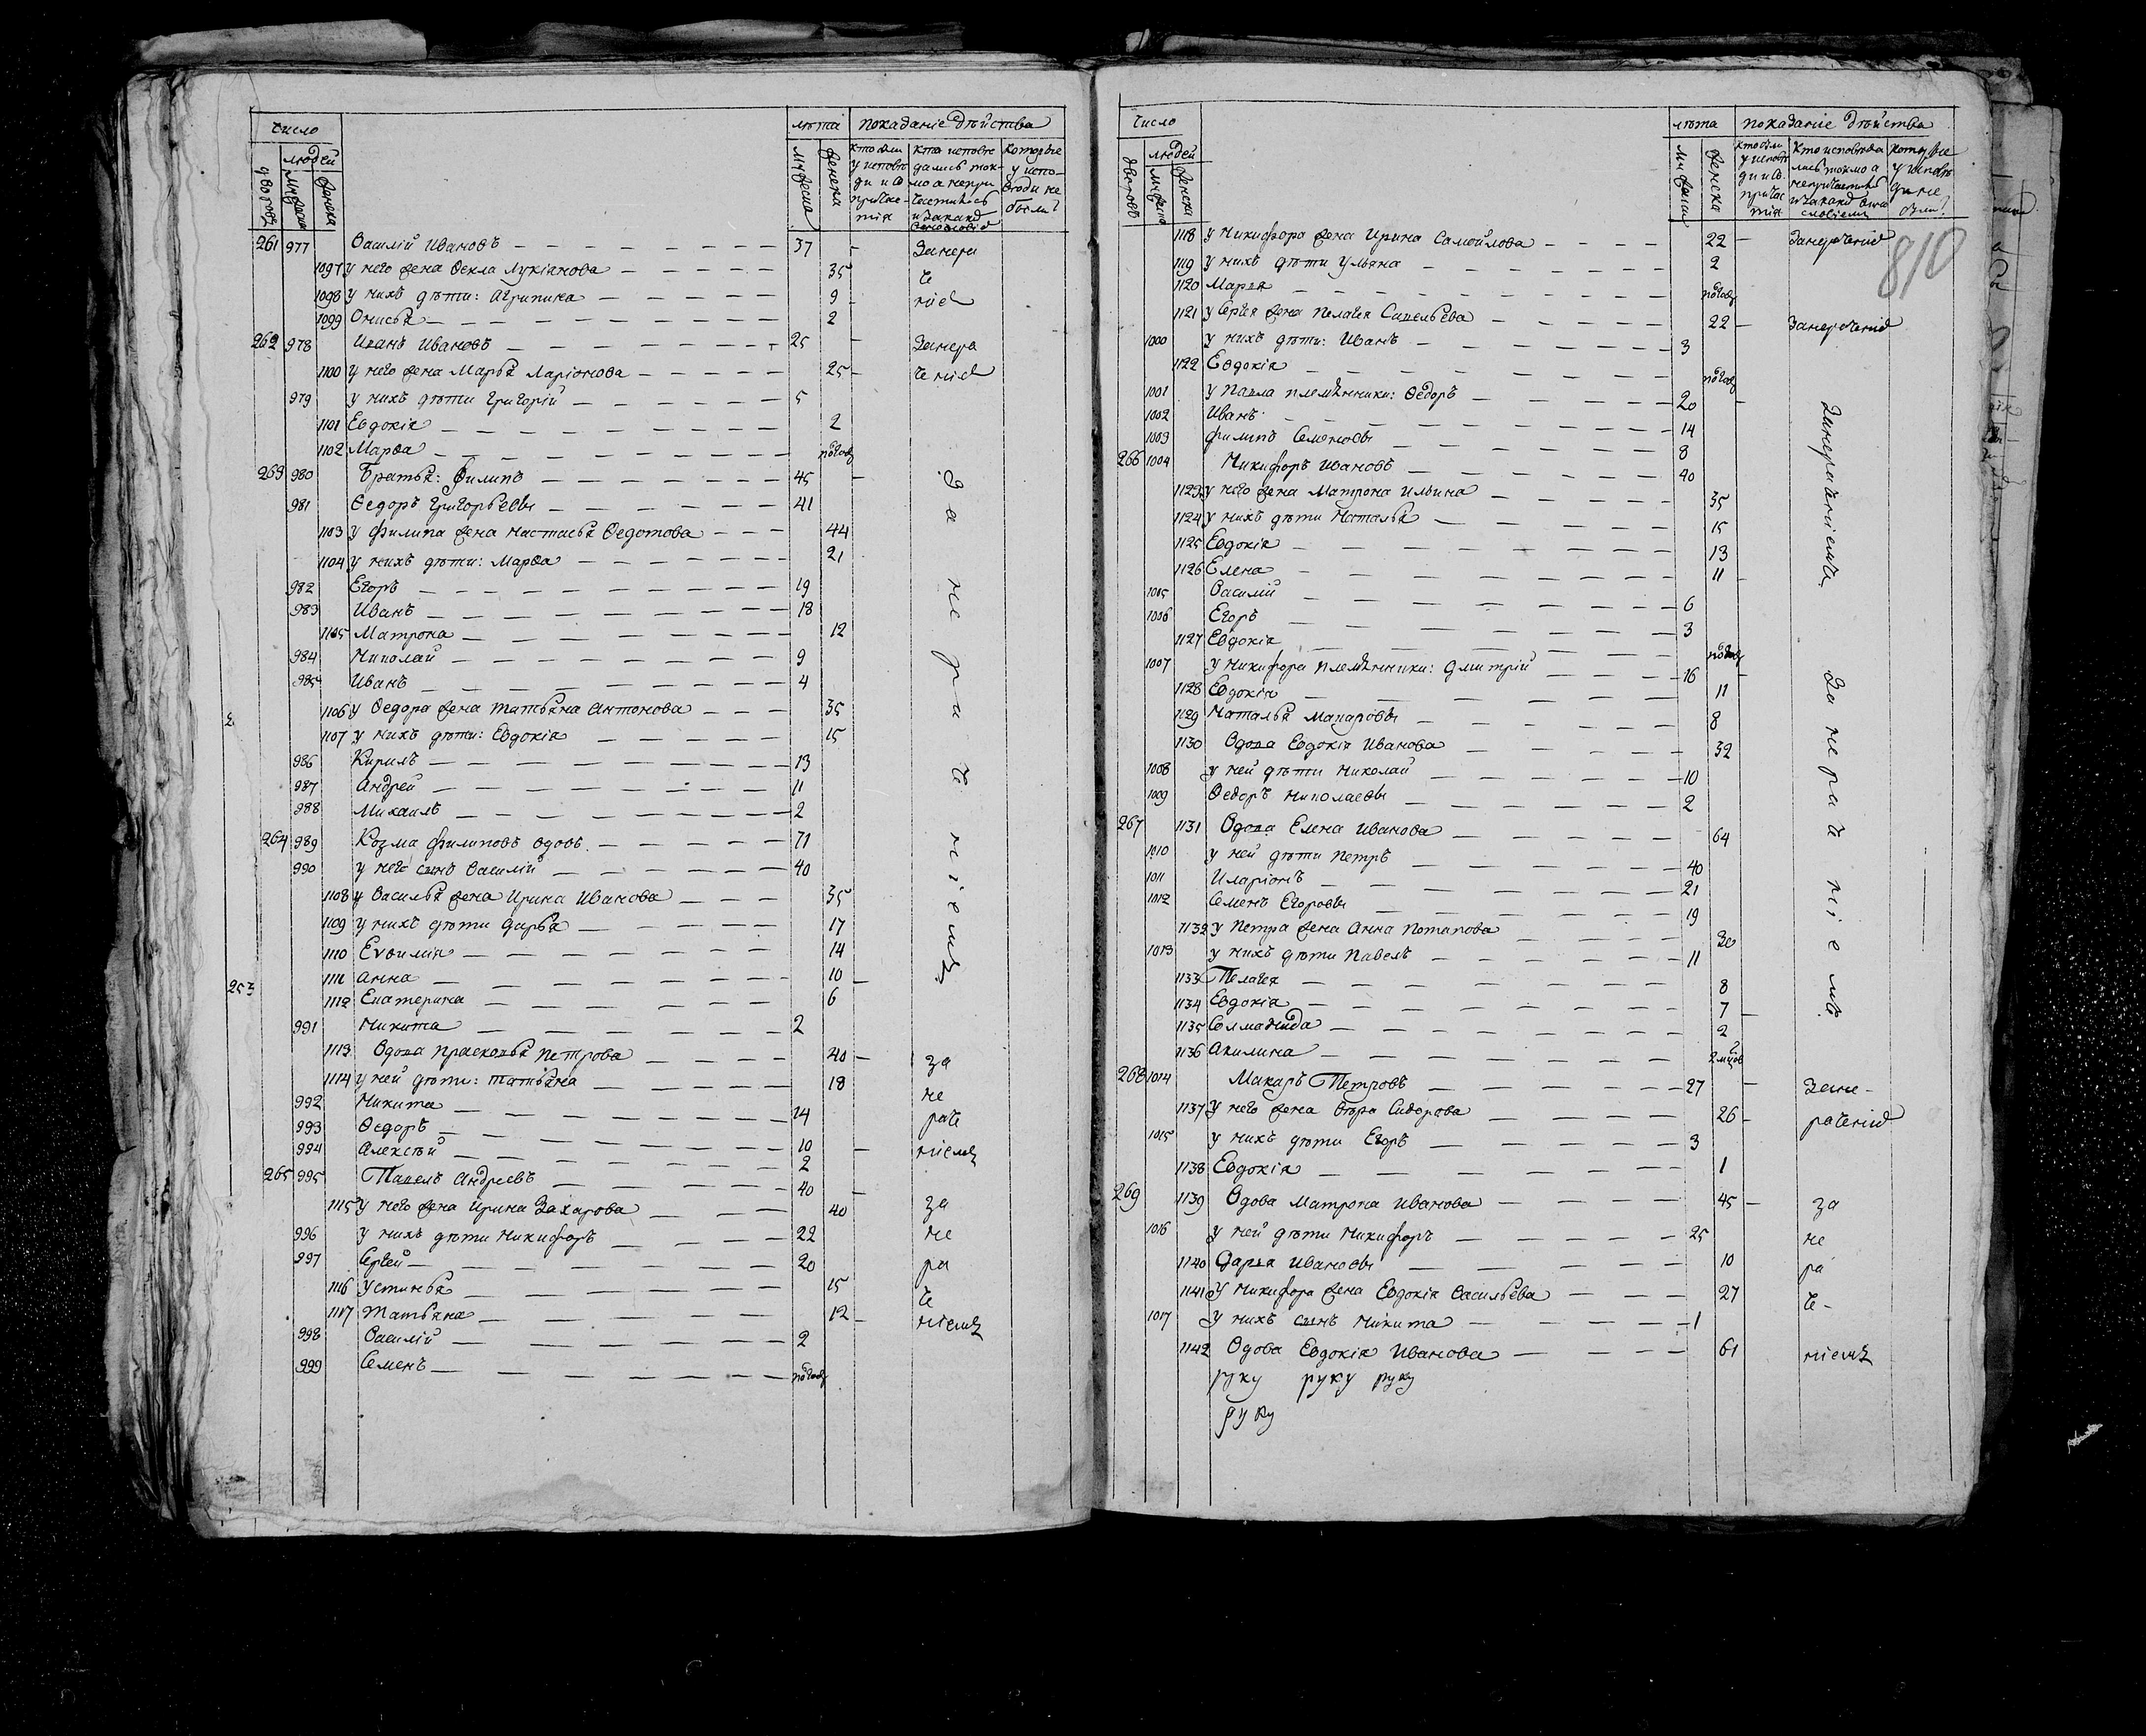 число
лѣта показаніе дѣйства
дворовъ людей мужеска женска
мужеска женска кто были у исповѣди и св. причастія кто исповѣдались токмо а непричастились и за какимъ виннословіемъ которые у исповѣди не были
261 977 Василій Ивановъ 37 Занера
1097 у него жена Ѳекла Лукіанова 35 че
1098 у нихъ дѣти: Агрипина 9 ніем
1099 Онисья 2
262 978 Иванъ Ивановъ 25 Занера
1100 у него жена Марья Ларіонова 25 ченіем
979 у нихъ дѣти Григорій 5
1101 Евдокія 2
1102 Марѳа полгода
263 980 Братья: Филипъ 45
981 Ѳедоръ Григорьевы 41
1103 у Филипа жена Настасья Ѳедотова 44
1104 у нихъ дѣти: Марѳа 21
982 Егоръ 19
983 Иванъ 18
1105 Матрона 12
984 Николай 9
985 Иванъ 4
1106 у Ѳедора жена Татьяна Антонова 35
1107 у нихъ дѣти: Евдокія 15
986 Кирилъ 13
987 Андрей 11
988 Михаилъ 2
264 989 Козма Филиповъ вдовъ 71
990 у него сынъ Василій 40
1108 у Василья жена Ирина Иванова 35
1109 у нихъ дѣти Дарья 17
1110 Евѳимія 14
1111 Анна 10
1112 Екатерина 6
253
991 Никита 2
1113 Вдова Прасковья Петрова 40 за
1114 у ней дѣти: Татьяна 18 не
992 Никита 14 раче
993 Ѳедоръ 10
994 Алексѣй 2 ніемъ
265 995 Павелъ Андреевъ 40
1115 у него жена Ирина Захарова 40 за
996 у нихъ дѣти Никифоръ 22 не
997 Сергей 20 ра
1116 Устинья 15 че
1117 Татьяна 12 ніемъ
998 Василій 2
999 Семенъ полгода
За нерачніемъ
число
лѣта показаніе дѣйства
дворовъ людей мужеска женска
мужеска женска кто были у исповѣди и св. причастія кто исповѣдались токмо а непричастились и за какимъ виннословіемъ которые у исповѣди не были
810
1118 у Никифора жена Ирина Самойлова 22 Занераченіем
1119 у нихъ дѣти Ульяна 2
1120 Марья полгода
1121 у Сергея жена Пелагея Савельева 22 Занераченіем
1000 у нихъ дѣти: Иванъ 3
1122 Евдокія полгода
1001 у Павла племянники: Ѳедоръ 20
1002 Иванъ 14
1003 Филипъ Семеновы 8
266 1004 Никифоръ Ивановъ 40
1123 у него жена Матрона Ильина 35
1124 у нихъ дѣти Наталья 15
1125 Евдокія 13
1126 Елена 11
1005 Василій 6
1006 Егоръ 3
1127 Евдокія полгода
1007 у Никифора племянники: Дмитрій 16
1128 Евдокія 11
1129 Наталья Макаровы 8
1130 Вдова Евдокія Иванова 32
1008 у ней дѣти Николай 10
1009 Ѳедоръ Николаевы 2
267 1131 Вдова Елена Иванова 64
1010 у ней дѣти Петръ 40
1011 Иларіонъ 21
1012 Семенъ Егоровы 19
1132 у Петра жена Анна Потапова 30
1013 у нихъ дѣти Павелъ 11
1133 Пелагея 8
1134 Евдокія 7
1135 Соломонида 2
1136 Акилина 2 мѣсяцов
268 1014 Макаръ Петровъ 27 Зане-
1137 у него жена Вѣра Сидорова 26 раченіем
1015 у нихъ дѣти Егоръ 3
1138 Евдокія 1
269 1139 Вдова Матрона Иванова 45 за
1016 у ней дѣти Никифоръ 25 не
1140 Дарья Ивановы 10 ра
1141 у Никифора жена Евдокія Васильева 27 че-
1017 у нихъ сынъ Никита 1
1142 Вдова Евдокія Иванова 61 ніемъ
руку руку руку
руку
Занераченіемъ
За нерачніемъ